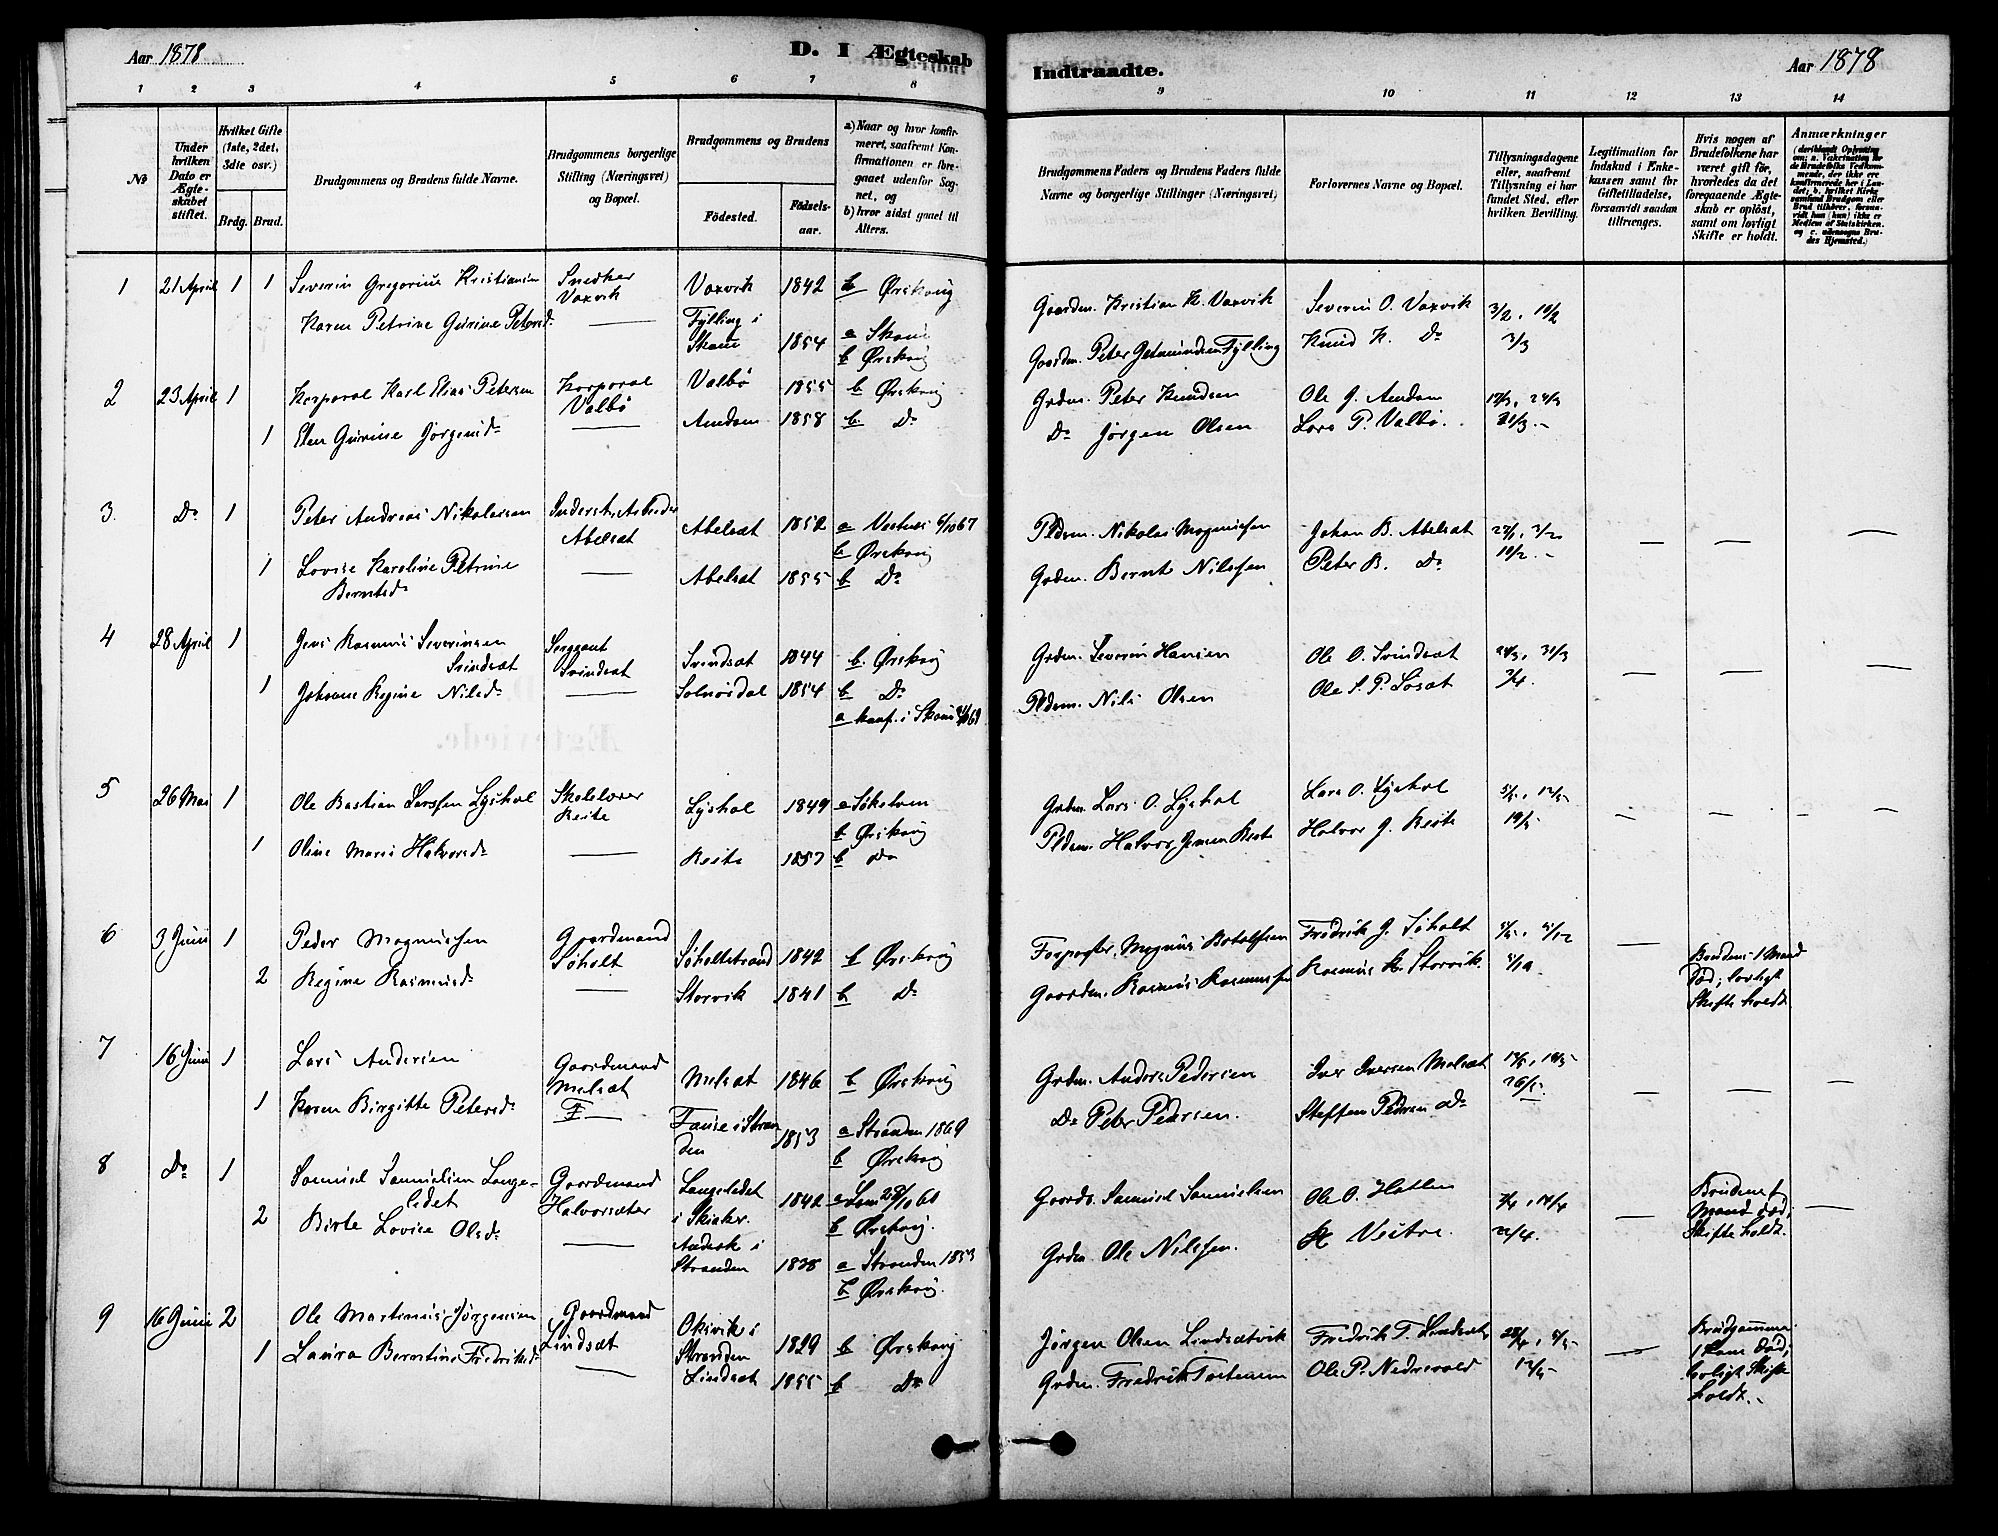 Aar 1878
D. I Ægteskab
Indtraadte.
Aar 1878
1 2 3 4 5 6 7 8 9 10 11 12 13 14
No
Under hvilken Dato er Ægteskabet stiftet.
Hvilket Gifte (1ste, 2det, 3die osv.)
Brdg. Brud.
Brudgommens og Brudens fulde Navne.
Brudgommens borgerlige Stilling (Næringsvei) og Bopæl.
Brudgommens og Brudens
Fødested.
Fødselsaar.
a) Naar og hvor konfirmeret, saafremt Konfirmationen er foregaaet udenfor Sognet, og
b) hvor sidst gaaet til Alters.
Brudgommens Faders og Brudens Faders fulde Navne og borgerlige Stillinger (Næringsvei)
Forlovernes Navne og Bopæl.
Tillysningsdagene eller, saafremt Tillysning ei har fundet Sted, efter hvilken Bevilling.
Legitimation for Indskud i Enkekassen samt for Giftetilladelse, forsaavidt saadan tiltrænges.
Hvis nogen af Brudefolkene har været gift før, hvorledes da det foregaaende Ægteskab er opløst, samt om lovligt Skifte er holdt.
Anmærkninger
1 21 April 1 1 Severin Gregorius Kristiansen Snedker Vaxvik Vaxvik 1842 b Ørskoug Gaardm. Kristian K. Vaxvik Severin O. Vaxvik 3/2, 10/2
Karen Petrine Gurine Petersd. — Fylling i Skoue 1854 a Skoue b Ørskoug Gaardm. Peter Fylling Knud K. Do 3/3
2 23 April 1 Korporal Karl Elias Petersen Korporal Valbø Valbø 1855 b Ørskoug Grdm. Peter Knudsen Ole J. Amdam 17/3, 24/3
1 Elen Gurine Jørgensd. — Amdam 1858 b Do Do Jørgen Olsen Lars P. Valbø. 31/3
3. Do 1 Peter Andreas Nikolaisen Abelsæt Abelsæt 1852 a Vestnes 6/10 67 b Ørskoug Pldsm. Nikolai Magnussen Johan B. Abelsæt 27/1, 3/2
1 Lovise Karoline Petrine Berntsd. — Abelsæt 1855 b Do Grdm. Bernt Nilssen Peter B. Do 10/2
4 28 April 1 Jens Rasmus Severinsen Svindsæt Sergeant Svindsæt Svindsæt 1844 b. Ørskoug Grdm. Severin Hansen Ole O. Svindsæt 24/3, 31/3
1 Johanne Regine Nilsd. — Solnørdal 1854 b Do a konf. i Skoue Pldsm. Nils Olsen Ole S. P. Løsæt 7/4
5 26 Mai 1 Ole Bastian Larssen Lyshol Skolelærer Reite Lyshol 1849 a Søholm b Ørskoug Grdm. Lars O. Lyshol Lars O. Lyshol 5/5, 12/5
1 Oline Marie Halvorsd. — Reite 1857 b Do Pldsm. Halvor Jensen Reite Halvor J. Reite 19/5
6 3 Juni 1 Peder Magnussen Gaardmand Søholt Søholtstrand 1842 b Ørskoug Magnus Botolfsen Fredrik J. Søholt
2 Regine Rasmusd. — Storvik 1841 b Do Gaardm. Rasmus Rasmussen Rasmus K. Storvik. Brudens 1 Mand død; lovligt Skifte holdt
7 16 Juni 1 Lars Andersen Gaardmand Melsæt Melsæt 1846 b Ørskoug Grdm. Anders Pedersen Iver Iversen Melsæt 12/5, 19/5
1 Karen Birgitte Petersd. — Fause i Stranden 1853 a Stranden 1869 b Ørskoug Do Peter Pedersen. Steffen Pedersen Do 26/5
8 Do 1 Samuel Samuelsen Langeledet Gaardmand Halvorsæter Langeledet 1842 b Ørskoug. Gaardb. Samuel Samuelsen Ole O. Hatlen 7/4, 14/4
2 Birte Lovise Olsd. — Stranden 1838 a Stranden 1853 b Ørskoug. Grdm. Ole Nilssen. Vestre. 22/4 Brudens f Mand død; Skifte holdt.
9 16 Juni 2 Ole Martinus Jørgensen Gaardmand Lindsæt Oksvik i Stranden 1829 b Ørskoug Jørgen Olsen Lindsætvik Fredrik T. Lindsæt 28/4, 5/5
1 Laura Berntine Fredriksd. — Lindsæt 1855 b Do Grdm. Fredrik Torstensen Ole P. Nedrevold 12/5 Brudgommens 1 Kone død; lovligt Skifte holdt.